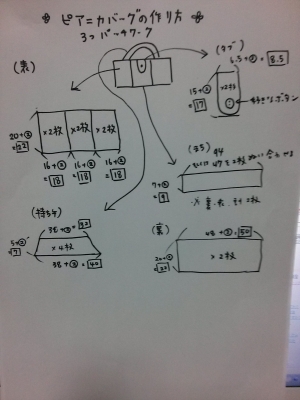 ※ ピアニカバッグの作り方 ※
3つパッチワーク
(表)
×2枚 ×2枚 ×2枚
20+②
=22
16+② 16+② 16+②
=18 =18 =18
(タブ)
6.5+②=8.5
15+②
=17
×2枚
好きなボタン
(まち)
44
47を2枚ぬい合わせる
7+②
=9
※裏・表、計2枚
(持ち手)
30+②=32
5+②
=7
×4枚
38+②=40
(裏)
48+②=50
20+②
=22
×2枚